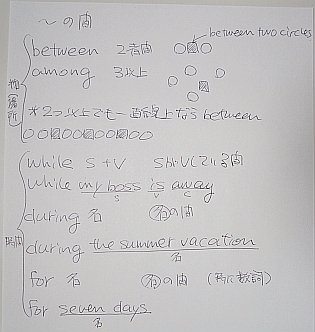 ～の間
between two circles
between 2者間
among 3以上
*2つ以上でも一直線上ならbetween
場所
while S+V SがVしている間
while my boss is away
S V C
during 名 名の間
時間
during the summer vacation
名
for 名 名の間 (特に数詞)
for seven days
名